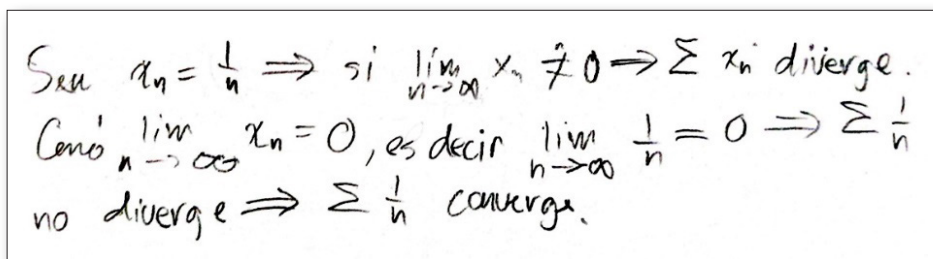 Sea xₙ = 1/n ⟹ si lim n→∞ xₙ ≠ 0 ⟹ Σ xₙ diverge.
Como lim n→∞ xₙ = 0, es decir lim n→∞ 1/n = 0 ⟹ Σ 1/n
no diverge ⟹ Σ 1/n converge.